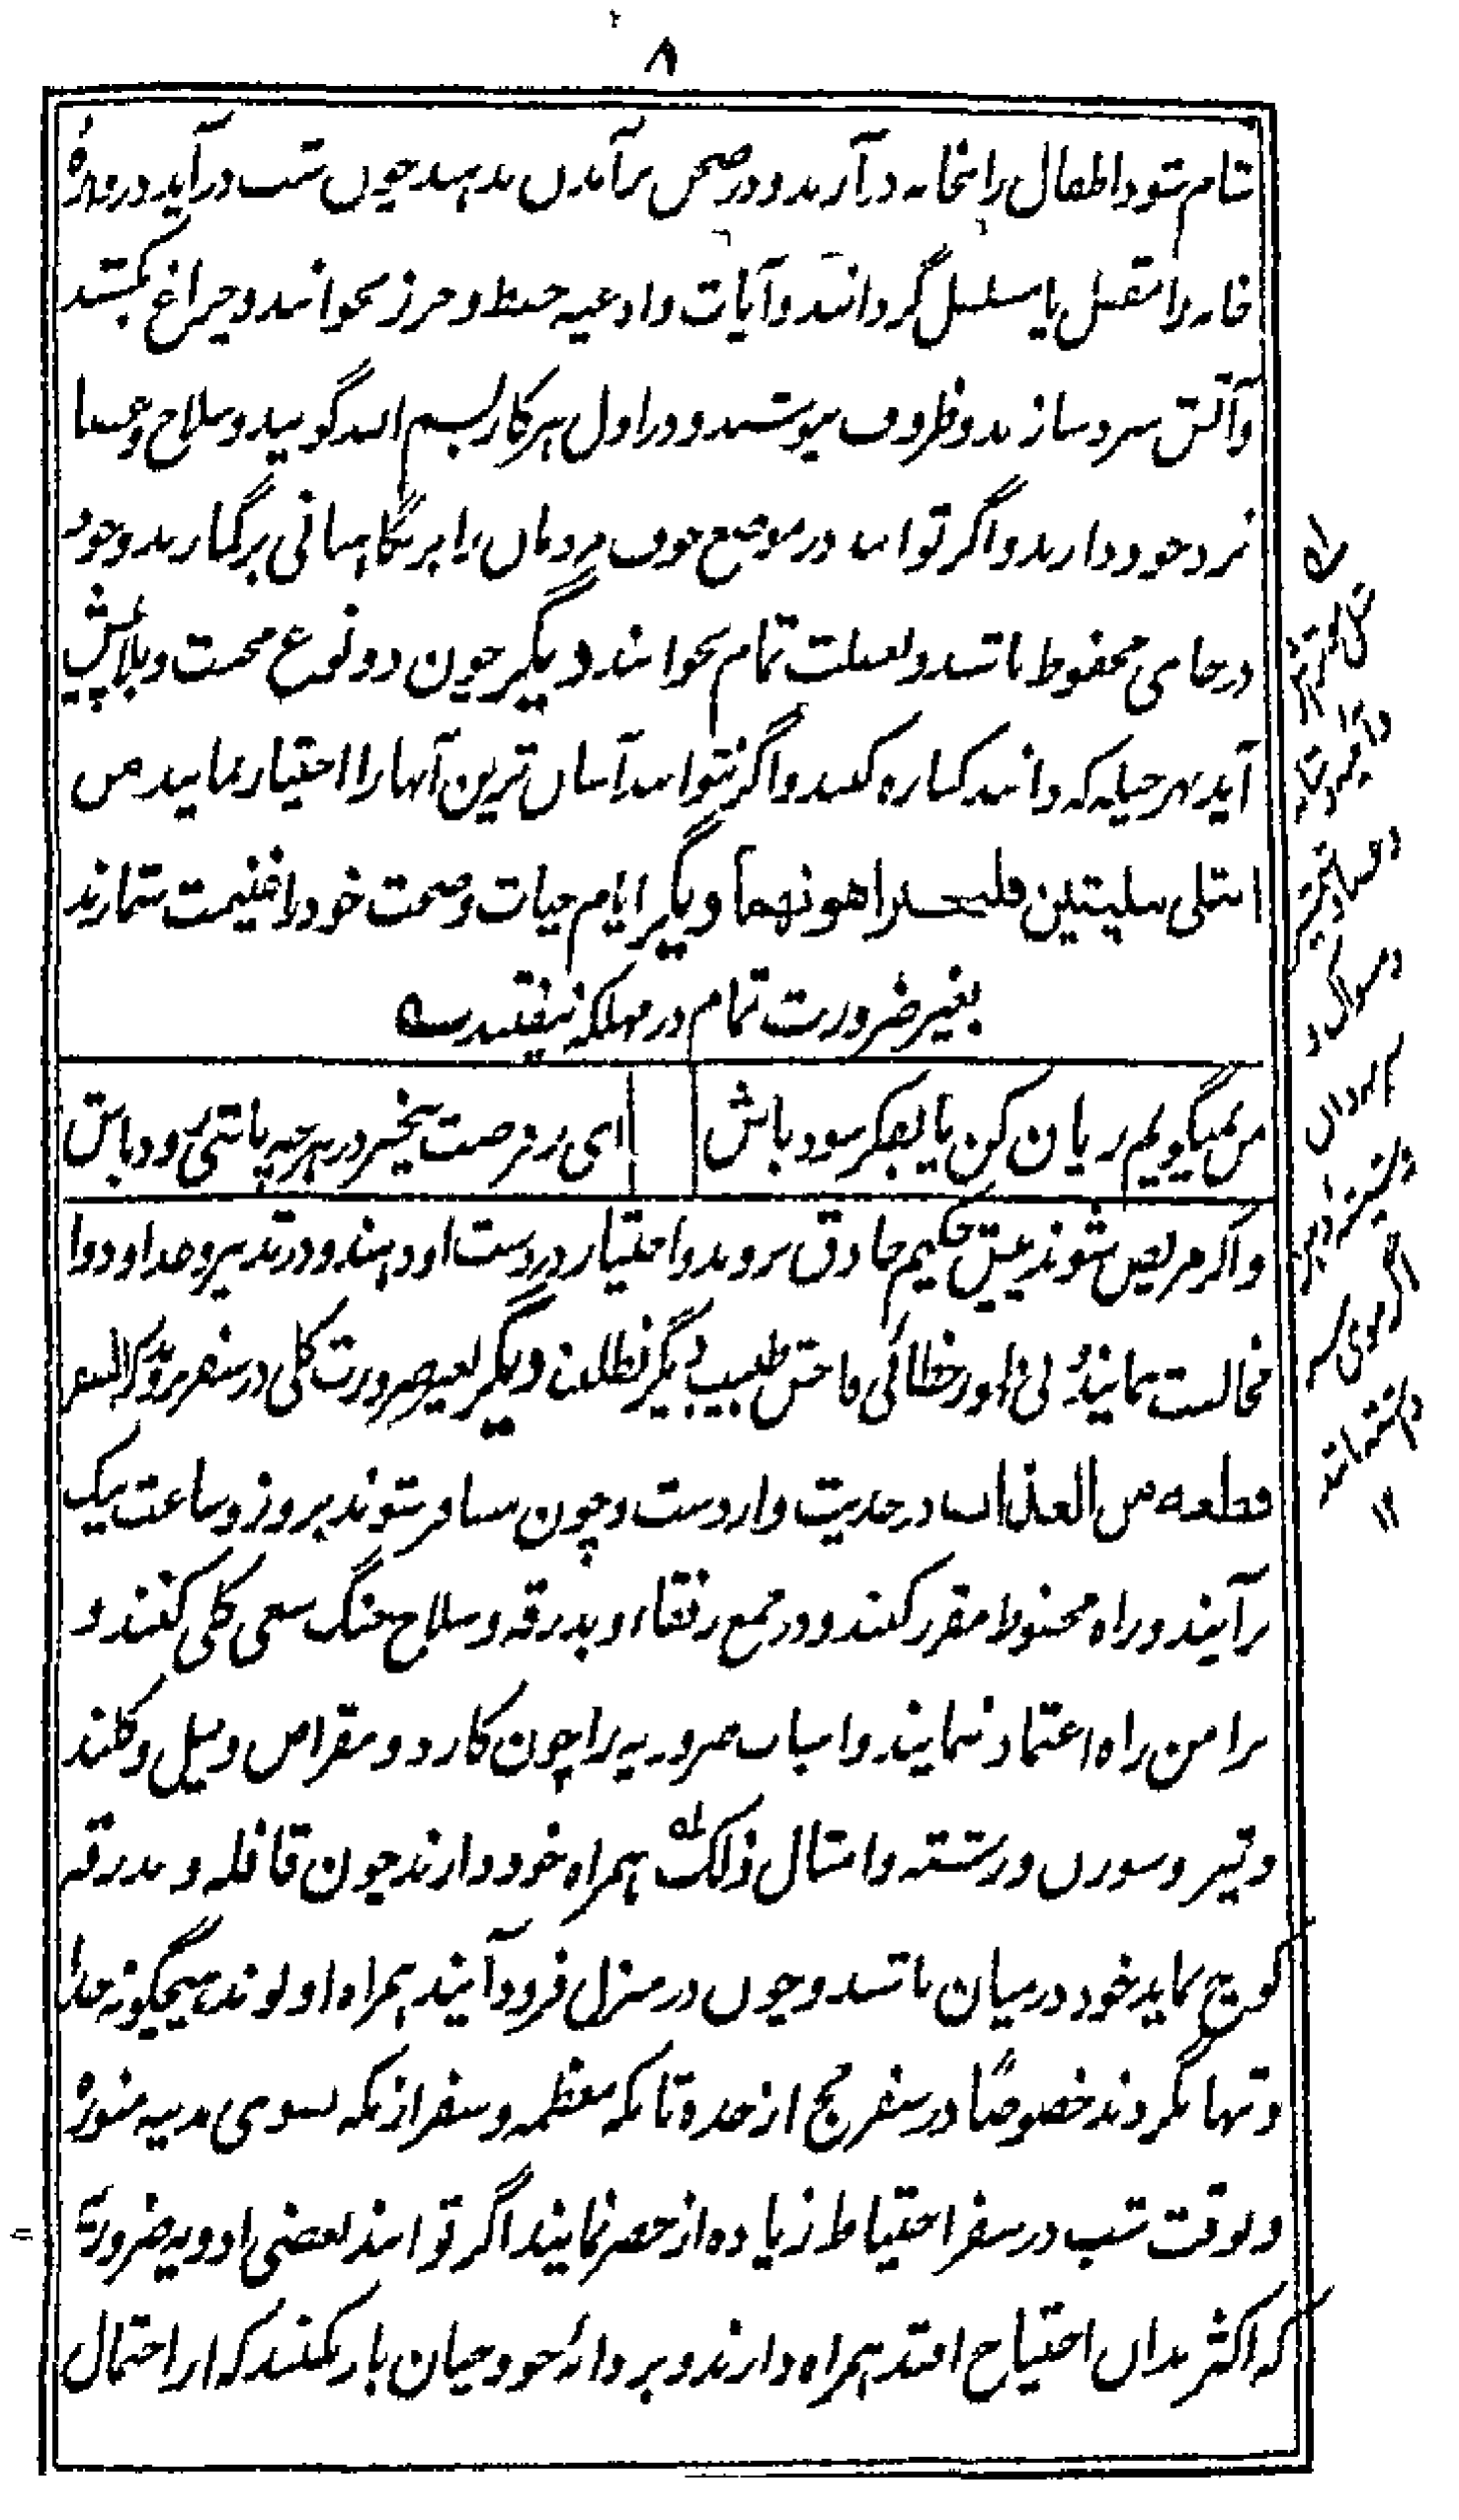 ۸
شام شود اطفال را بخانه در آرند و در صحن برآمدن ندهند چون شب در آید دروازهٔ
خانه را مقفل یا مسلسل گردانند و آیات و ادعیه حفظ و حرز بخوانند و چراغ بکشند
و آتش سرد سازند و ظروف بپوشند و در اول هر کار بسم الله گویند و سلاح و عصا
نزد خود دارند و اگر توانند در موضع خوف مردمان را بر نگاهبانی برگمارند و خود
در جای محفوظ باشند و لغفلت تمام نخوانند دیگر چون دو نوع محنت و بلا پیش
آید بهر حیله که دانند کناره کنند و اگر نتوانند آسان ترین آنها را اختیار نمایند من
ابتلی ببلیتین فلیختر اهونهما دیگر ایام حیات و صحت خود را غنیمت شمارند
بغیر ضرورت تمام در مهلکه نیفتند سه
من نمیگویم زیان کن یا بفکر سود باش
ای ز فرصت بیخبر در هر چه باشی زود باش
و اگر مریض شوند پیش حکیم حاذق بروند و اختیار در دست او دهند و در تدبیر و غذا و دوا
مخالفت ننمایند و بی ظهور خطائی فاحش طبیب دیگر نطلبند دیگر بغیر ضرورت کلی در سفر نروند که السفر
قطعه من العذاب در حدیث وارد ست و چون مسافر شوند بروز و ساعت نیک
برآیند و راه محفوظ مقرر کنند و در جمع رفقاء و بدرقه و سلاح جنگ سعی کلی کنند و
بر امن راه اعتماد ننمایند و اسباب ضروریه را چون کارد و مقراض و بیل و کلند
و تبر و سوزن و رشته و امثال ذلک له همراه خود دارند چون قافله و بدرقه
کوچ نماید خود درمیان باشند و چون در منزل فرود آیند همراه او بوند هیچگونه جدا
و تنها نگردند خصوصًا در سفر حج از جده تا مکه معظمه و سفر از مکه بسوی مدینه منوره
و بوقت شب در سفر احتیاط زیاده از حصر نمایند اگر توانند بعضی ادویه ضروریه
که اکثر بدان احتیاج افتد همراه دارند و بر دانهٔ خود حیان بار نکنند که از احتمال